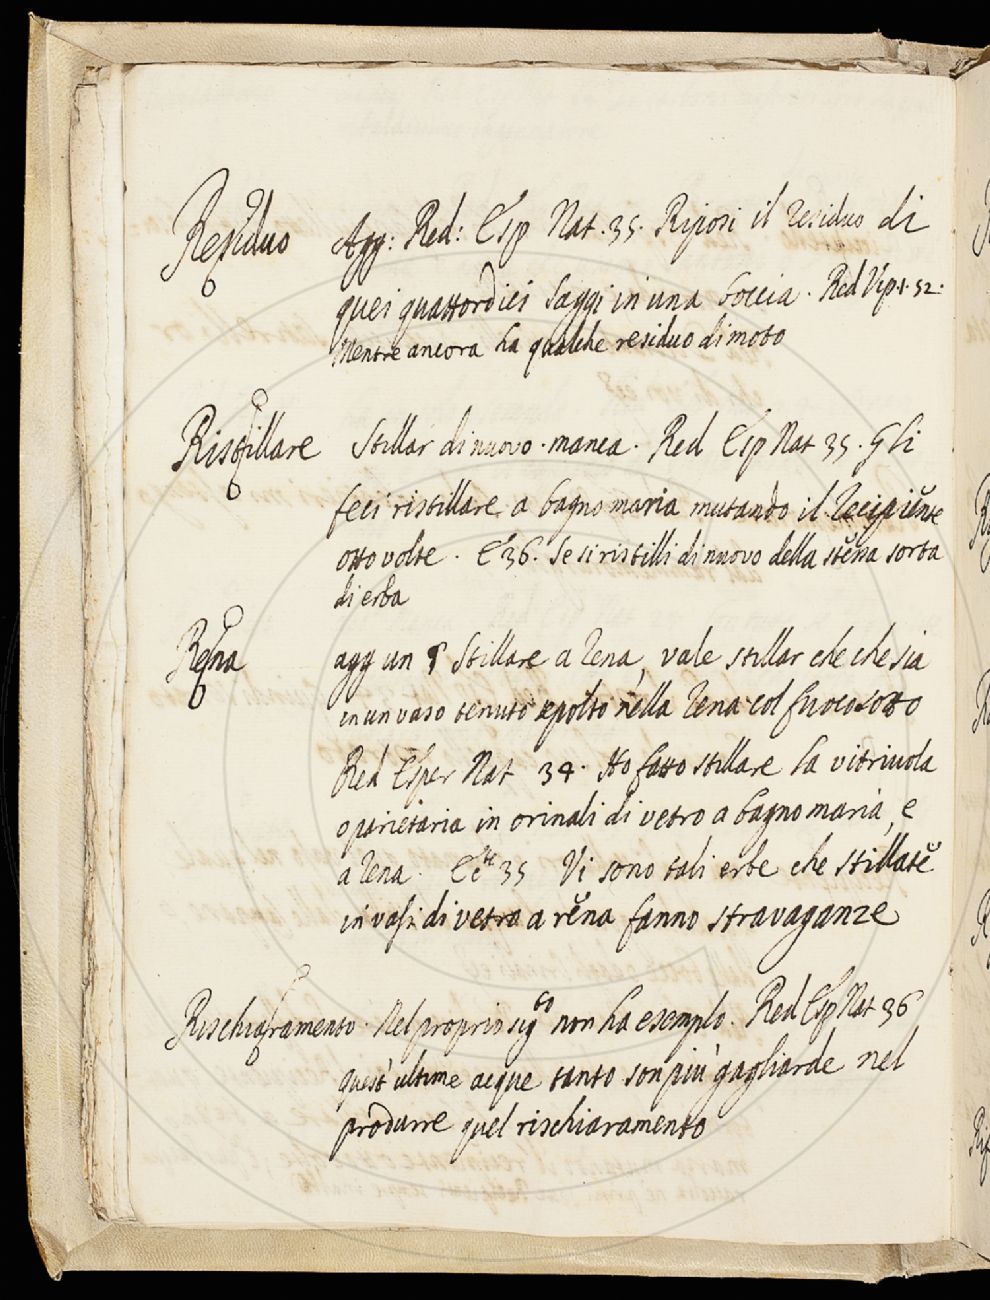 Residuo Agg: Red: Esp Nat. 35. Riposi il residuo di
quei quattordici saggi in una boccia. Red Vip. 1. 52.
Mentre ancora ha qualche residuo di moto
Ristillare Stillar di nuovo. manca. Red Esp Nat 35. Gli
feci ristillare a bagno maria mutando il recipiente
otto volte. E 36. Se si ristilli di nuovo della stessa sorta
di erba
Rena agg un § Stillare a rena, vale stillar che che sia
in un vaso tenuto sepolto nella rena col fuoco sotto
Red Esper Nat 34. Ho fatto stillare la vitriuola
o parietaria in orinali di vetro a bagno maria, e
a rena. E 35 Vi sono tali erbe che stillate
in vasi di vetro a rena fanno stravaganze
Rischiaramento. Nel proprio sig.to non ha esemplo. Red Esp Nat 36
quest' ultime acque tanto son più gagliarde nel
produrre quel rischiaramento